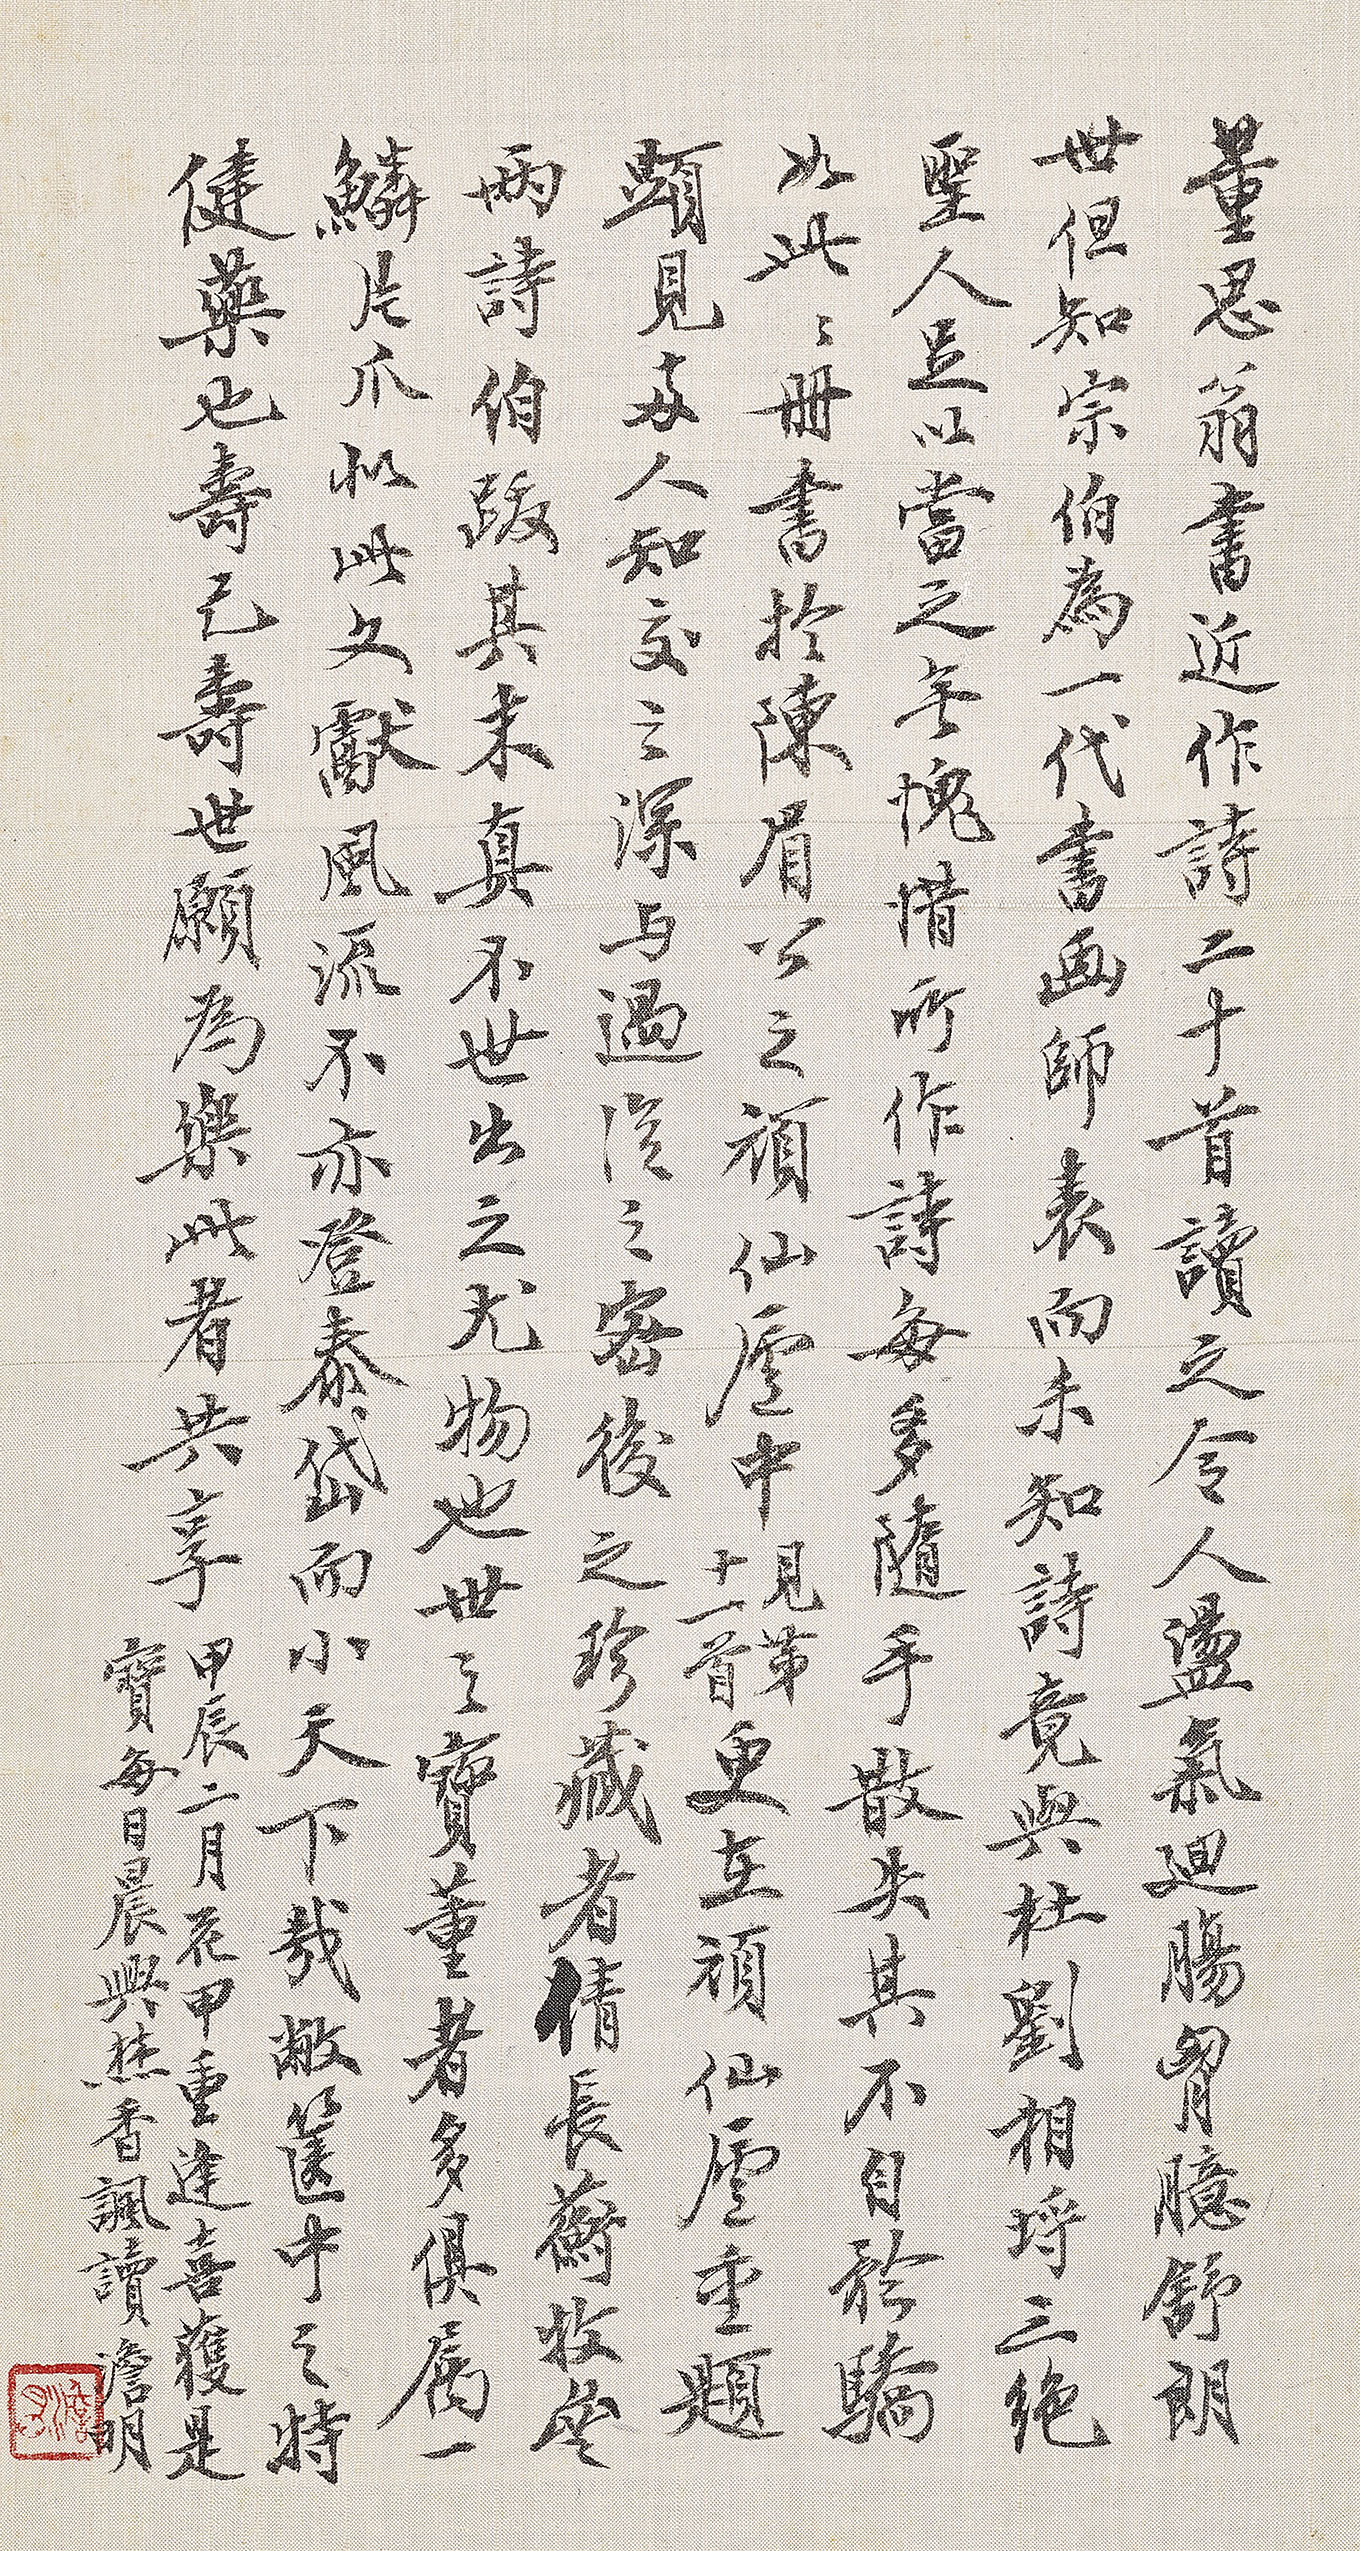 董思翁書近作詩二十首讀之令人盪氣迴腸胷臆舒朗
世但知宗伯為一代書画師表而未知詩竟與杜劉相埒三絕
聖人足以當之無愧惜所作詩每多隨手散失其不自矜驕
如此此冊書於陳眉公之頑仙廬中見第十一首更在頑仙廬重題
顕見兩人知交之深与過從之密後之珍藏者倩長蘅牧齋
兩詩伯跋其末真不世出之尤物也世之寶董者多俱屬一
鱗片爪似此文獻風流不亦登泰岱而小天下哉敝篋中之特
健藥也壽己壽世願為樂此者共享
甲辰二月花甲重逢喜獲是
寶每日晨興焚香諷讀澹明